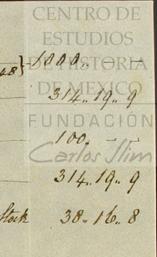 CENTRO DE
ESTUDIOS
DE HISTORIA
DE MÉXICO
FUNDACIÓN
Carlos Slim
48} 1000.. – –
314.. 19.. 9
100. – –
314.. 19.. 9
Stock 38.. 16.. 8